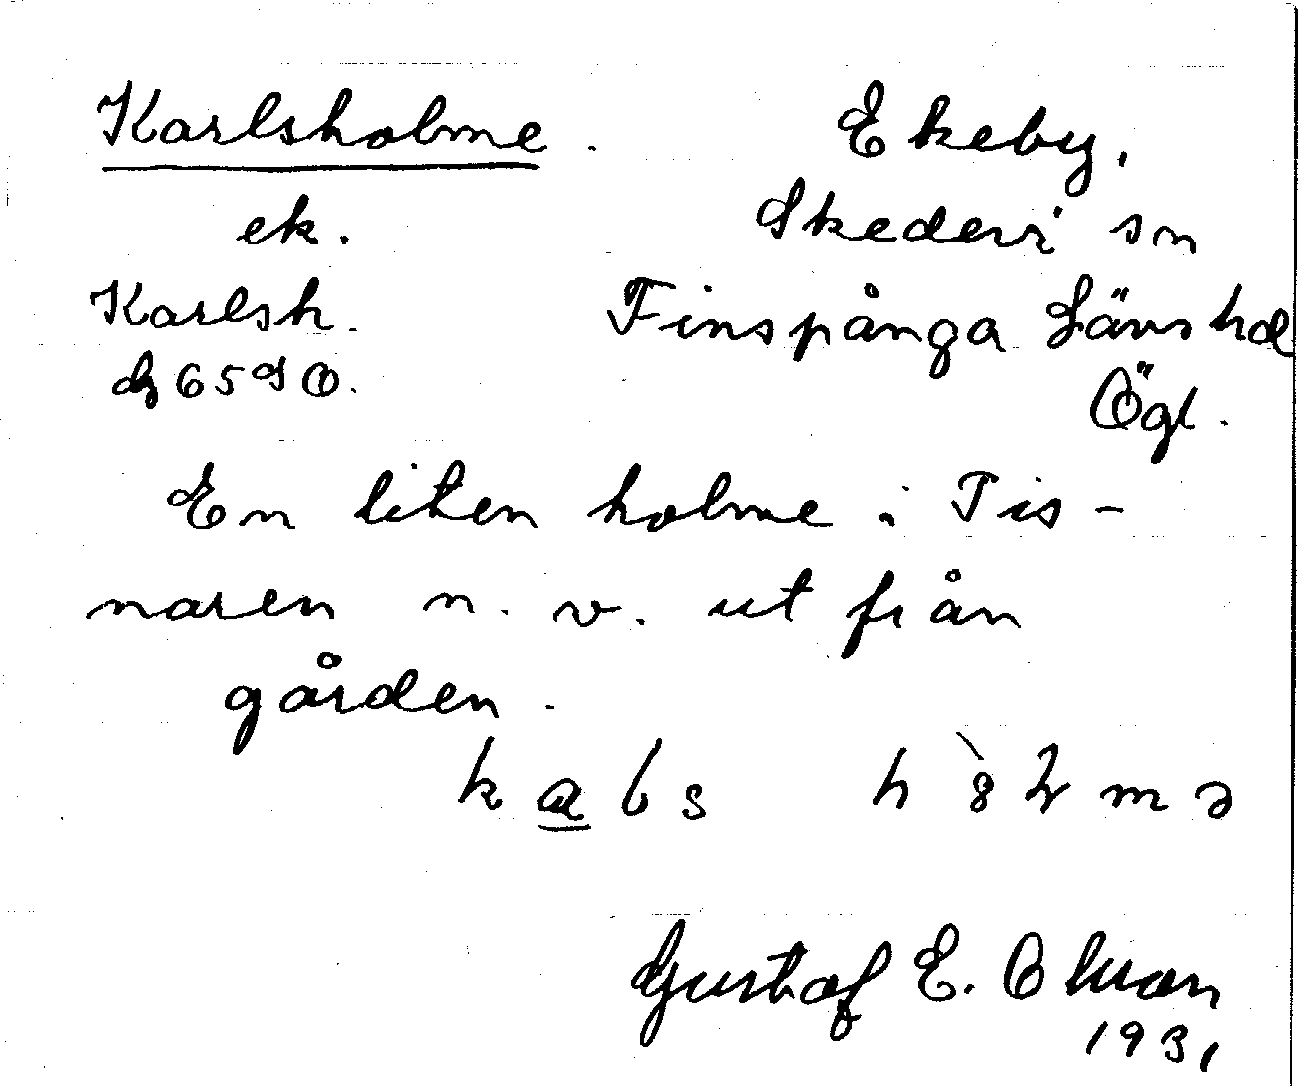 Karlsholme. Ekeby.
ek. Skedevi sn
Karlsh. Finspånga Länshd
65 SO. Ögl.
En liten holme i Tis-
naren n. v. ut från
gården.
Gustaf E. Olsson
1931